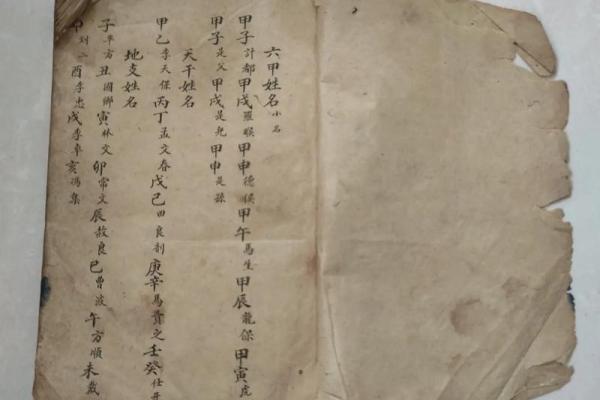 六甲姓名小名
甲子計都甲戌羅睺甲申德睺甲午馬生甲辰龍保甲寅虎
甲子是父甲戌是兄甲申是孫
天干姓名
甲乙李天保丙丁孟文春戊己田良利庚辛馬貴之壬癸任
地支姓名
子方丑国鄉寅林文卯常文辰赦良巳曹波午方順未戴
申酉李忠戌李阜亥馮集